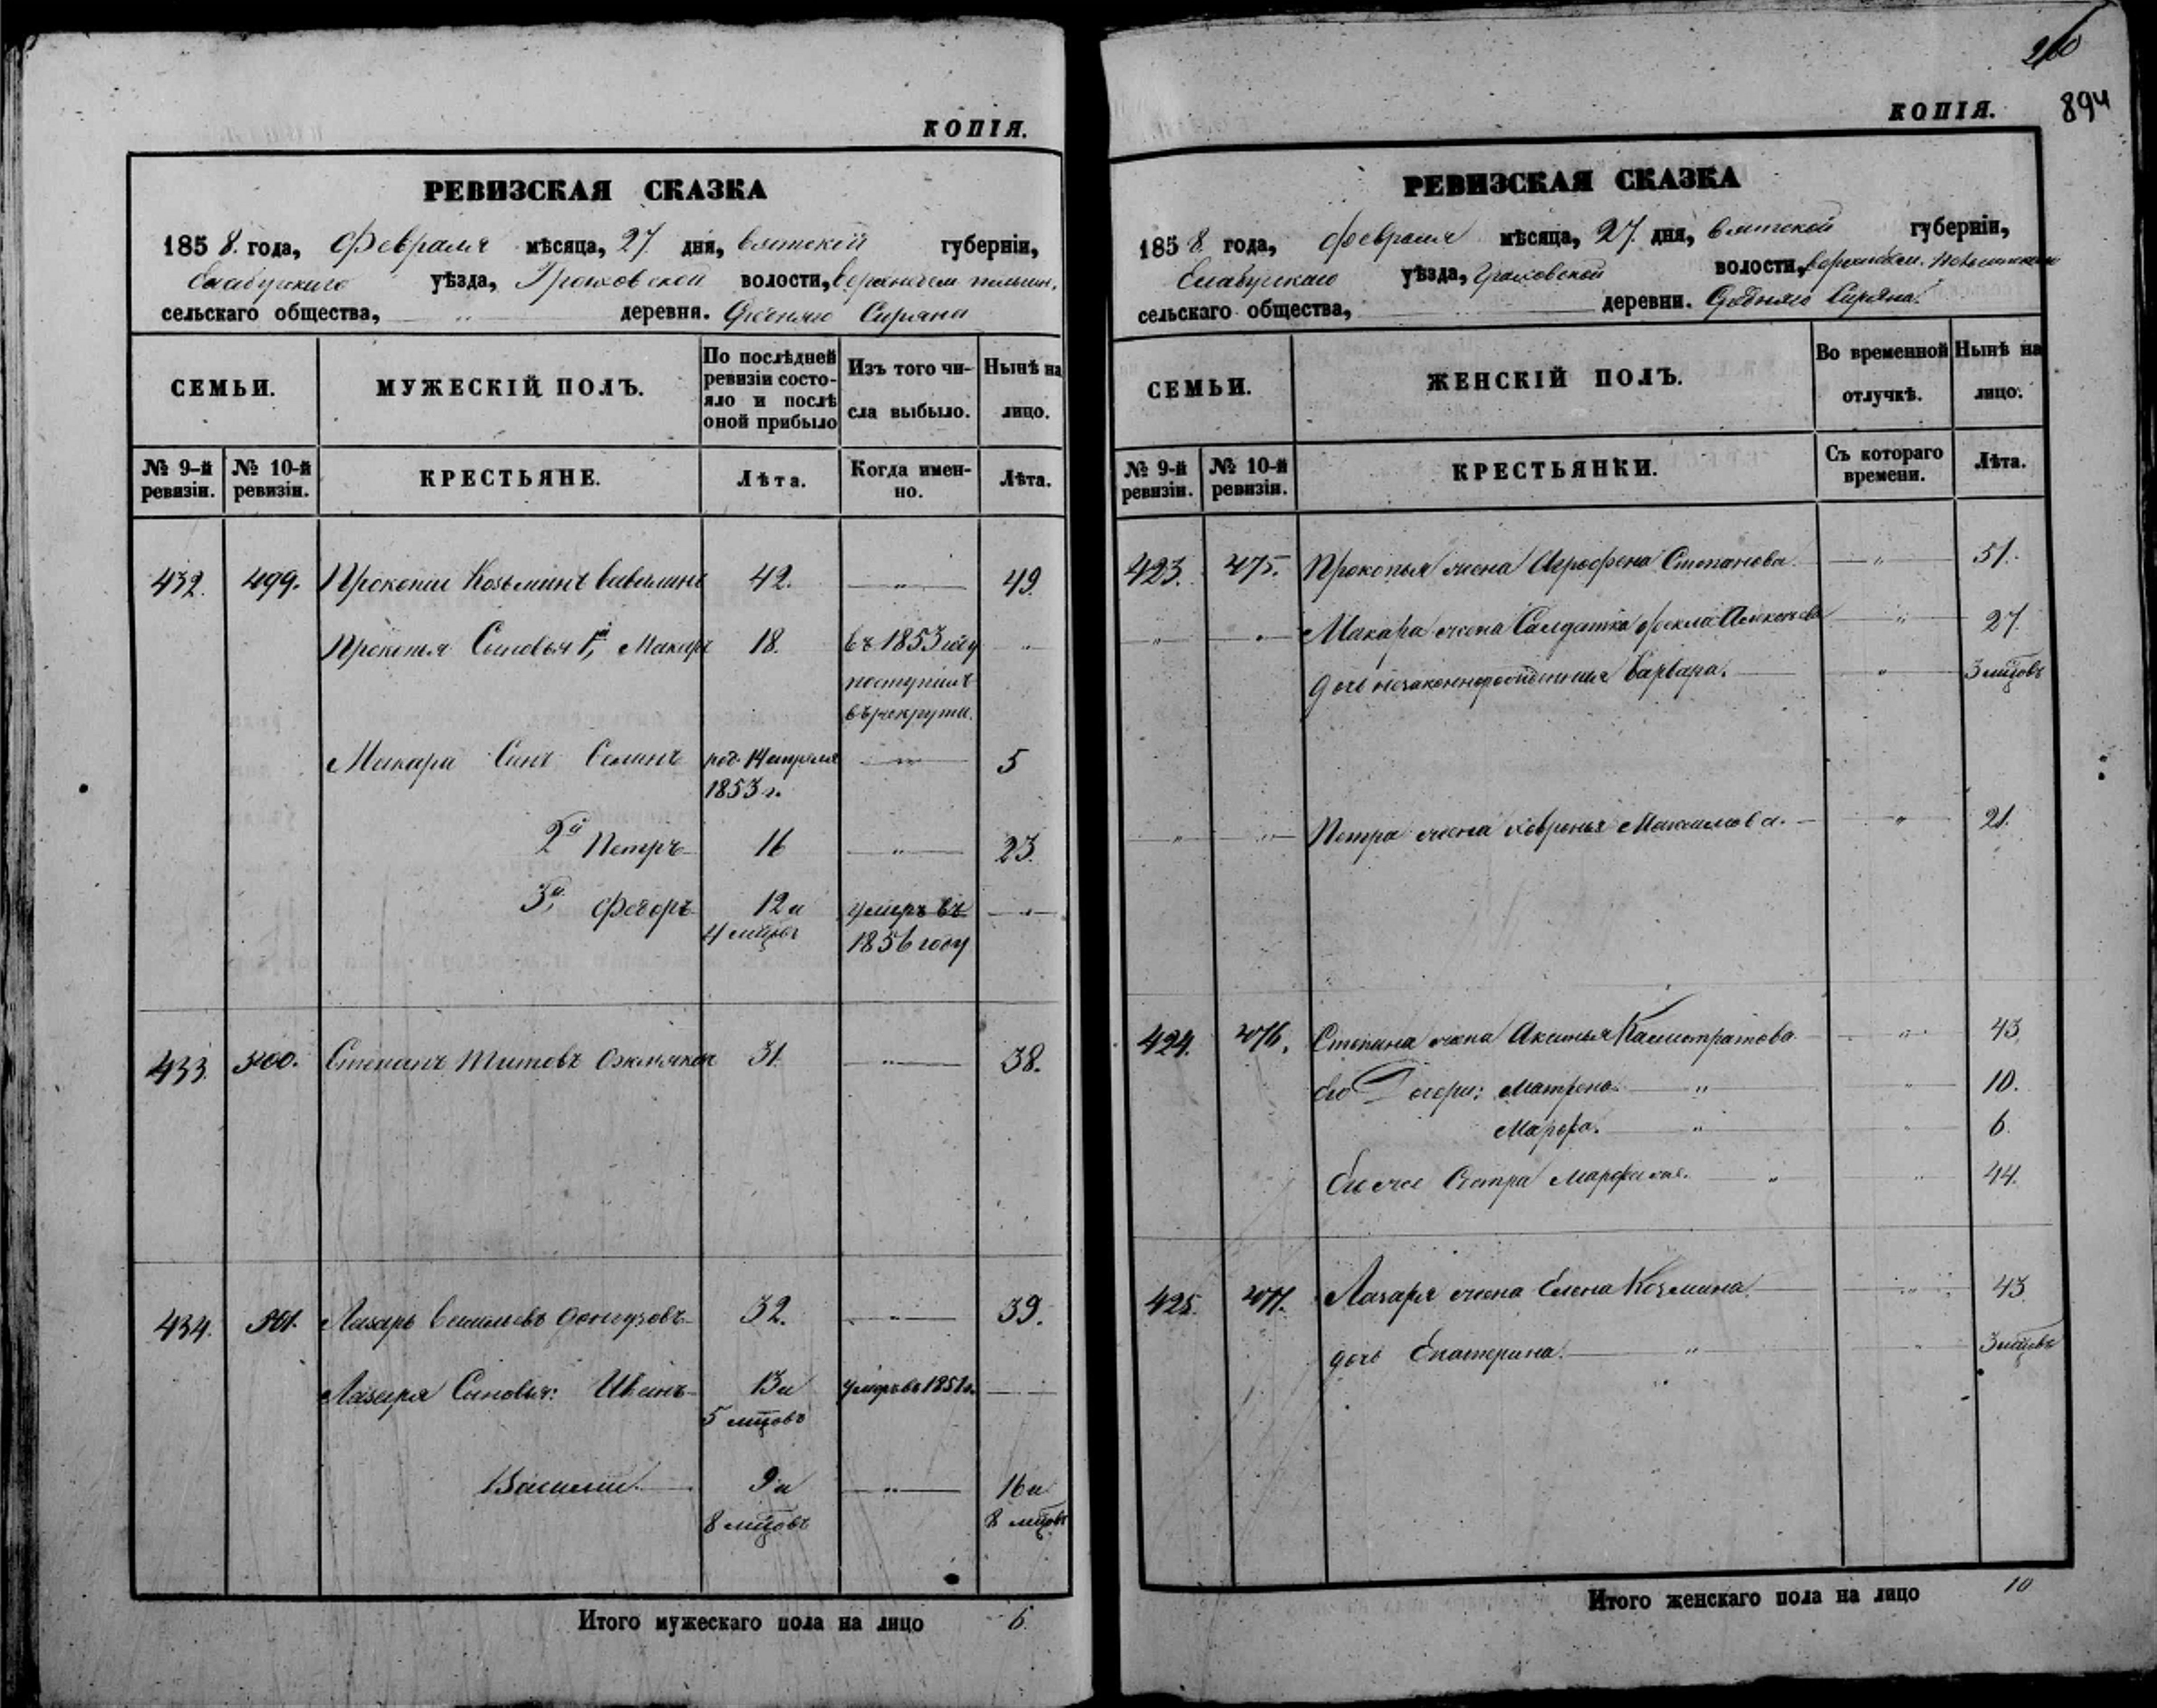 КОПІЯ.
РЕВИЗСКАЯ СКАЗКА
1858. года, Февраля мѣсяца, 27. дня, Вятской губерніи,
Елабугскаго уѣзда, Граховской волости,
сельскаго общества, „ деревня. Средняго Сиряна
СЕМЬИ.
МУЖЕСКІЙ ПОЛЪ.
По послѣдней
ревизіи состо-
яло и послѣ
оной прибыло
Изъ того чи-
сла выбыло.
Нынѣ на
лицо.
№ 9-й
ревизіи.
№ 10-й
ревизіи.
КРЕСТЬЯНЕ.
Лѣта.
Когда имен-
но.
Лѣта.
432. 499. Прокопій Козьминъ Вавилинъ 42. „ 49.
Прокопья Сыновья 1й, Макаръ 18. въ 1853 году „
поступилъ
въ рекруты.
Макара Сынъ род. 14 апреля „ 5
1853 г.
2й Петръ 16 „ 23.
3й, Федоръ 12 и умеръ въ „
4 мцовъ 1856 году
433. 500. Степанъ Титовъ 31. „ 38.
434. 501. Лазарь Васильевъ 32. „ 39.
Лазаря Сыновья: Иванъ 13 и умеръ въ 1851 г.
5 мцовъ
Василій 9 и „ 16 и
8 мцовъ 8 мцовъ
Итого мужескаго пола на лицо 6.
260
894
КОПІЯ.
РЕВИЗСКАЯ СКАЗКА
1858 года, февраля мѣсяца, 27. дня, Вятской губерніи,
Елабугскаго уѣзда, Граховской волости,
сельскаго общества, деревни. Средняго Сиряна.
СЕМЬИ.
ЖЕНСКІЙ ПОЛЪ.
Во временной
отлучкѣ.
Нынѣ на
лицо.
№ 9-й
ревизіи.
№ 10-й
ревизіи.
КРЕСТЬЯНКИ.
Съ котораго
времени.
Лѣта.
423. 475. Прокопья жена Агрофена Степанова. „ 51.
„ „ Макара жена Салдатка Фекла „ 27
дочь незаконнорожденная Варвара. „ 3 мцовъ
„ „ Петра жена Хавронья Максимова. „ 21.
424. 476. Степана жена Аксинья Калистратова „ 43
Его Дочери: Матрена. „ „ 10.
Марфа. „ „ 6.
Его же Сестра Марфа „ „ 44.
425. 477. Лазаря жена Елена Козмина „ 43
дочь Екатерина. „ „ 3 мцовъ
Итого женскаго пола на лицо 10